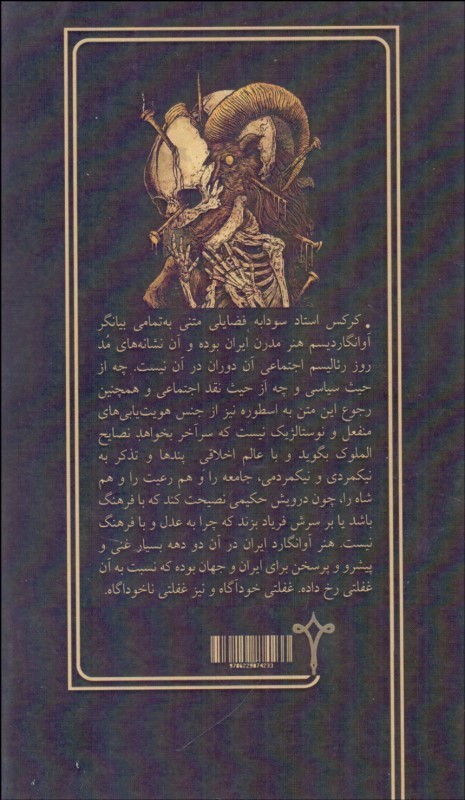 . کرکس استاد سودابه فضایلی متنی به‌تمامی بیانگر
آوانگاردیسم هنر مدرن ایران بوده و آن نشانه‌های مُد
روز رئالیسم اجتماعی آن دوران در آن نیست. چه از
حیث سیاسی و چه از حیث نقد اجتماعی و همچنین
رجوع این متن به اسطوره نیز از جنس هویت‌یابی‌های
منفعل و نوستالژیک نیست که سرآخر بخواهد نصایح
الملوک بگوید و با عالم اخلاقی پندها و تذکر به
نیکمردی و نیکمردمی، جامعه را و هم رعیت را و هم
شاه را، چون درویش حکیمی نصیحت کند که با فرهنگ
باشد یا بر سرش فریاد بزند که چرا به عدل و با فرهنگ
نیست. هنر آوانگارد ایران در آن دو دهه بسیار غنی و
پیشرو و پرسخن برای ایران و جهان بوده که نسبت به آن
غفلتی رخ داده. غفلتی خودآگاه و نیز غفلتی ناخوداگاه.